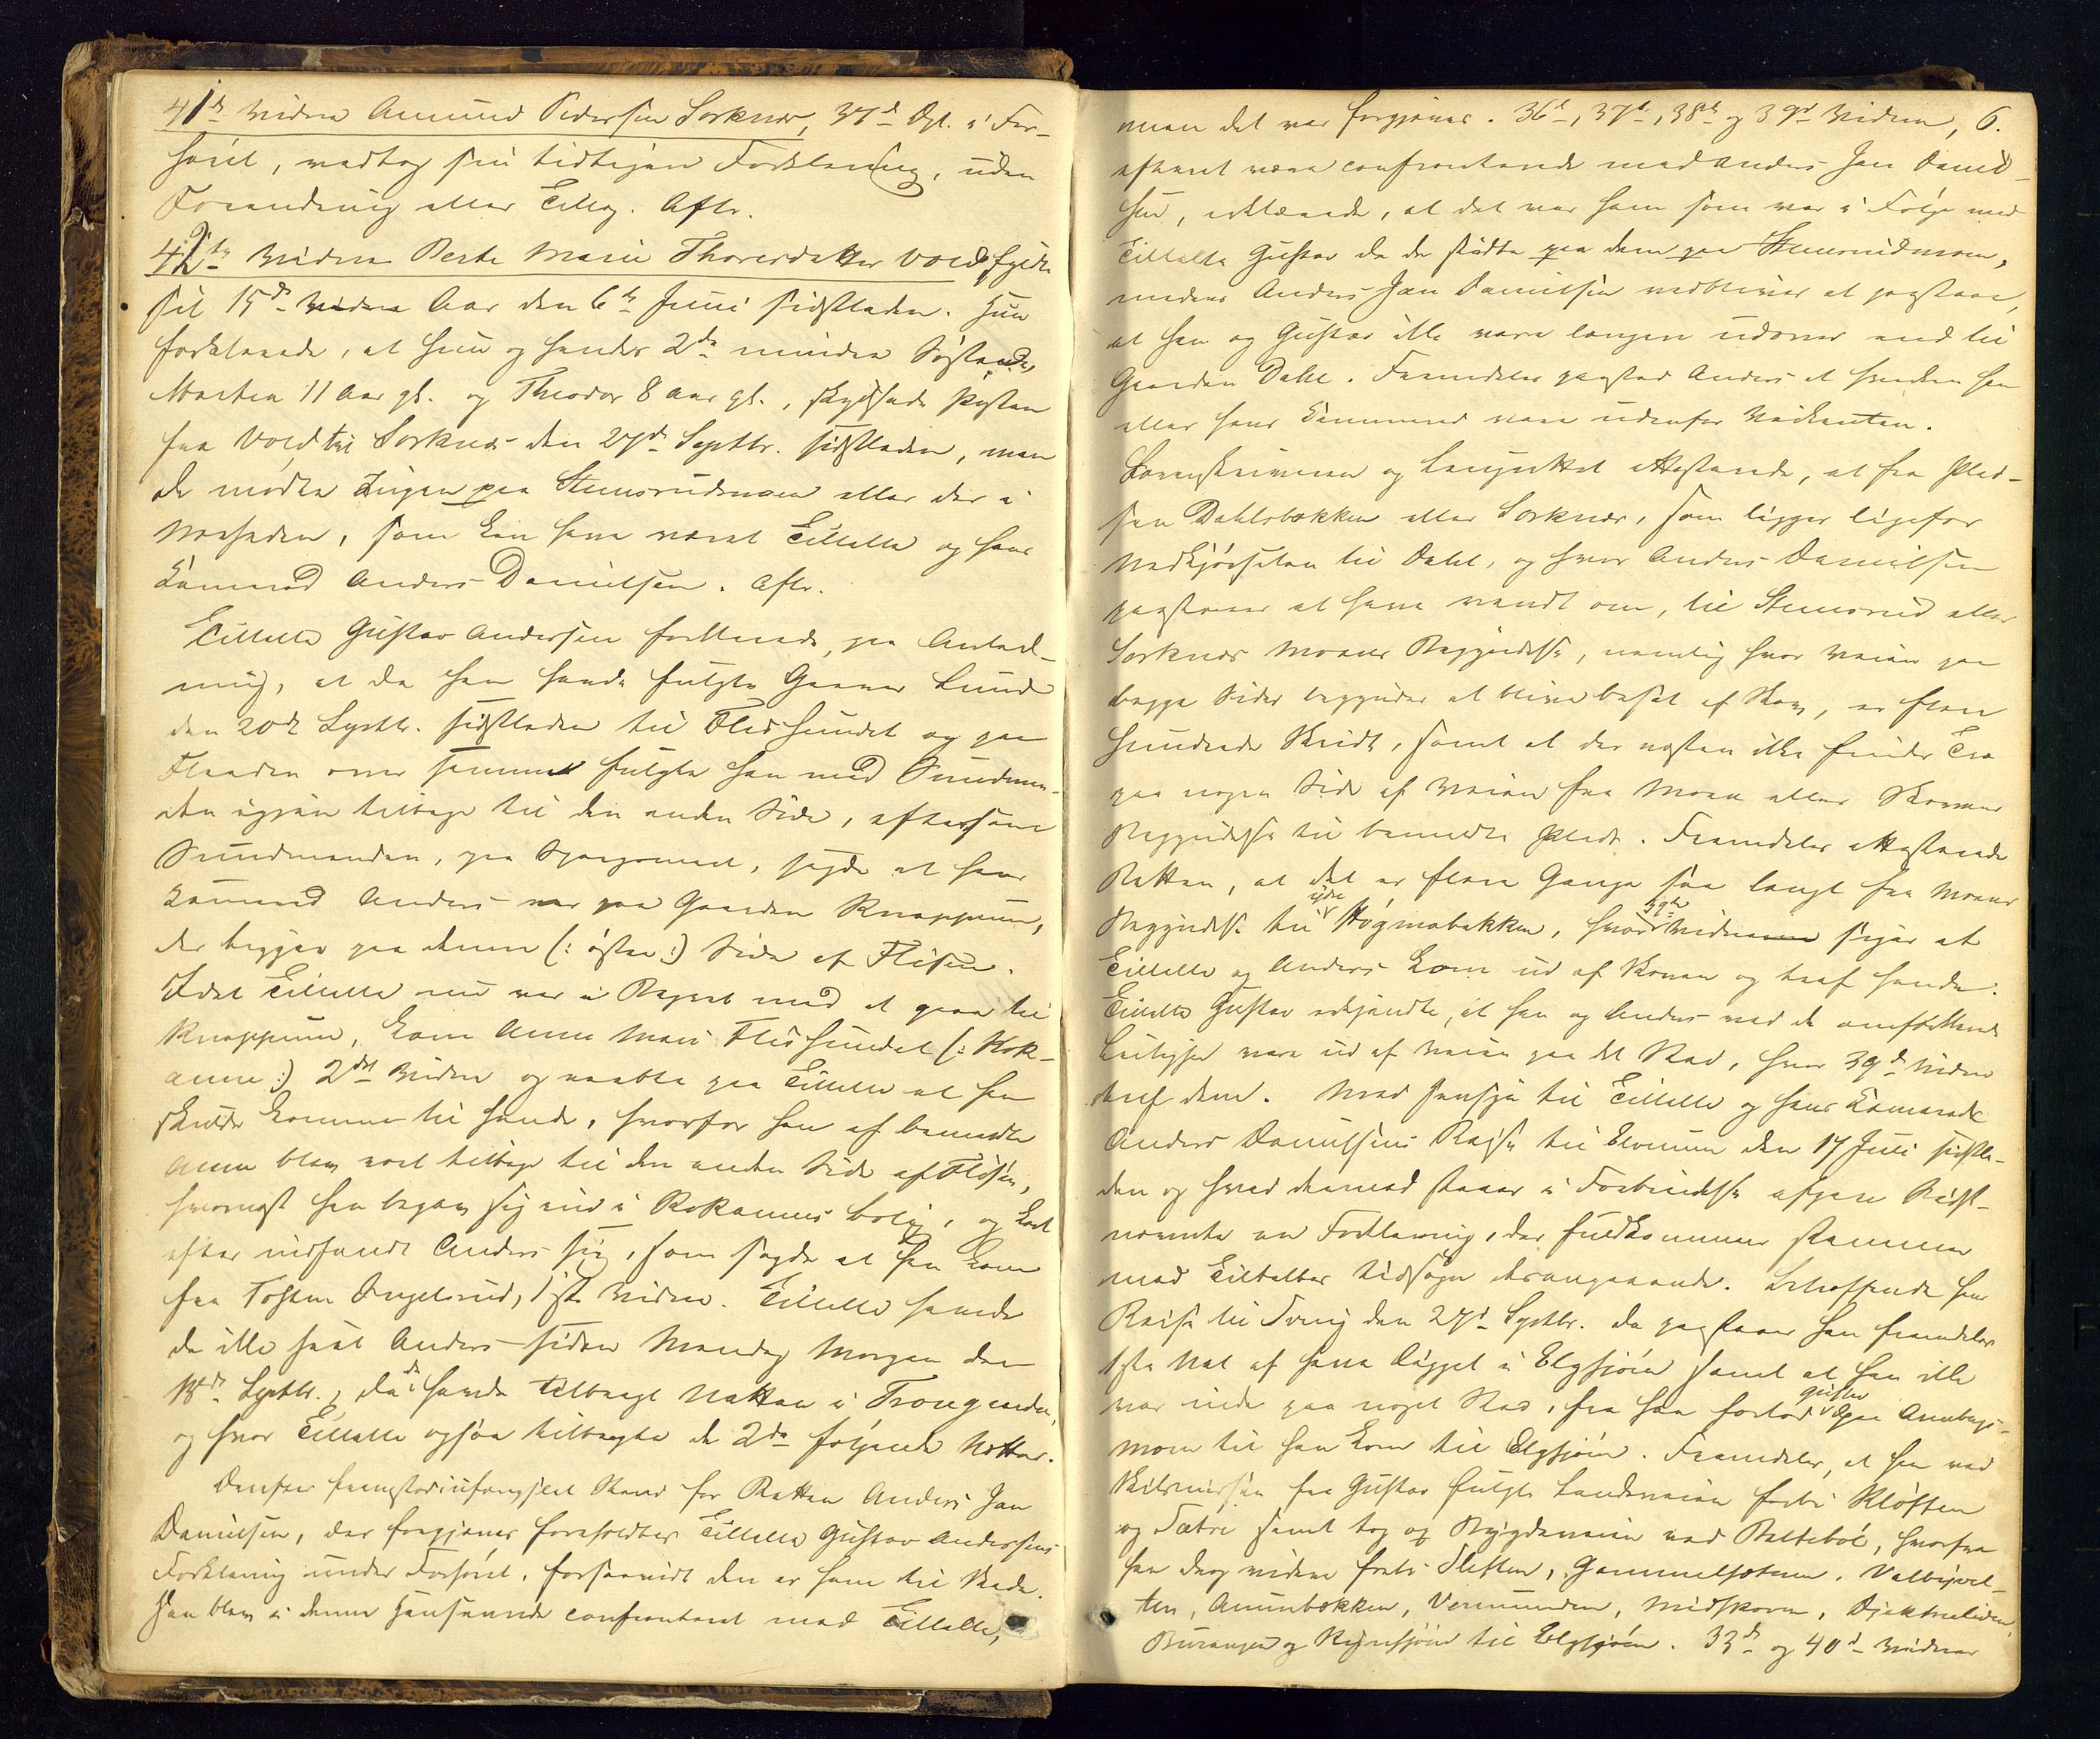 41de Vidne Amund Pedersen Sorknæs, 37d Dpt. i For-
hör, vedtog sin tidligere Forklaring, uden
Forandring eller Tillæg. Aftr.
42de Vidne Berte Marie Thoresdatter Vold, fyldte
sit 15de Aar den 6te Juni sidstleden. Hun
forklarede, at hun og hendes 2de mindre Søskende,
Martea 11 Aar gl. og Theodor 8 Aar gl., skydsede Posten
fra Vold til Sorknæs den 27de Septbr. sidstleden, men
de mødte Ingen paa Stensrudmoen eller der i
Nærheden, som kan have været Tiltalte og hans
Kamerad Anders Danielsen. Aftr.
Tiltalte Gustav Andersen forklarede, paa Anled-
ning, at da han havde fulgte Gunner Lund
den 20de Septbr. sidstleden til Flissundet og paa
Flaaden over samme fulgte han med Sundman-
den igjen tilbage til den anden Side, eftersom
Sundmanden, paa Spørgsmaal, sagde at hans
Kamerad Anders var paa Gaarden Knappum,
der ligger paa denne (: østre :) Side af Flisen.
Idet Tiltalte nu var i Begreb med at gaa til
Knappum, kom Anne Marie Flissundet (: Rok-
anne :) 2det Vidne og raabte paa Tiltalte at han
skulde komme til hende, hvorfor han af bemeldte
Anne blev roet tilbage til den anden Side af Flisen,
hvornæst han begav sig ind i Rokannes Bolig, og kort
efter indfandt Anders sig, som sagde at han kom
fra Tosten Engelsrud, 1ste Vidne. Tiltalte havde
da ikke seet Anders siden Mandag Morgen den
18de Septbr., da de havde tilbragt Natten i Trongaarden,
og hvor Tiltalte ogsaa tilbragte de 2de følgende Nætter.
Derpaa fremstod ufængslet Stand for Retten Anders Jan
Danielsen, der forgjæves foreholdtes Tiltalte Gustav Andersens
Forklaring under Forhöret, forsaavidt den er ham til Skade.
Han blev i denne Henseende confronteret med Tiltalte,
men det var forgjæves. 36te, 37te, 38te og 39de Vidne, 6.
efterat være confronterede med Anders Jan Daniel-
sen, erklærede, at det var ham som var i Følge med
Tiltalte Gustav da de stødte paa dem paa Stensrudmoen,
medens Anders Jan Danielsen vedbliver at paastaa,
at han og Gustav ikke vare længere udover end til
Gaarden Dahl. Fremdeles paastod Anders at hverken han
eller hans Kammerad vare udenfor Veikanten.
Sorenskriveren og Laugrettet attesterede, at fra Plad-
sen Dahlsbækken eller Sorknæs, som ligger ligefor
Nedkjørselen til Dahl, og hvor Anders Danielsen
paastaar at have vendt om, til Stensrud eller
Sorknæs Moens Begyndelse, nemlig hvor Veien paa
begge Sider begynder at blive besat af Skov, er flere
hundrede Skridt, samt at der næsten ikke findes Træ
paa nogen Side af Veien fra Moen eller Skovens
Begyndelse til bemeldte Plads. Fremdeles attesterede
Retten, at det er flere Gange saa langt fra Moens
Begyndelse til ydre Høgmobakken, hvor 39te Vidne siger at
Tiltalte og Anders kom ud af Skoven og traf hende.
Tiltalte Gustav erkjendte, at han og Anders ved de omforklarede
Leiligheder vare ud af Veien paa det Sted, hvor 39de Vidne
traf dem. Med Hensyn til Tiltalte og hans Kamerads
Anders Danielsens Reise til Elverum den 17 Juli sidstle-
den og hvad dermed staaer i Forbindelse afgav Sidst-
nævnte en Forklaring, der fuldkommen stemmer
med Tiltaltes Udsagn derangaaende. Betræffende hans
Reise til Sverig den 27de Septbr. da paastaar han fremdeles
1ste Nat at have ligget i Elgsjøen samt at han ikke
var inde paa noget Sted, fra han forlod Gustav paa Arneberg-
moen til han kom til Elgsjøen. Fremdeles, at han ved
Skilsmissen fra Gustav fulgte Landeveien forbi Kløften
og Sætre samt tog op Bygdeveien ved Beltebøl, hvorfra
han drog videre forbi Sletten, Gammelsæteren, Valbyvel-
ten, Amunbækken, Vermunden, Midskoven, Djektneliden,
Burangen og Røgnsjøen til Elgsjøen. 33de og 40de Vidner